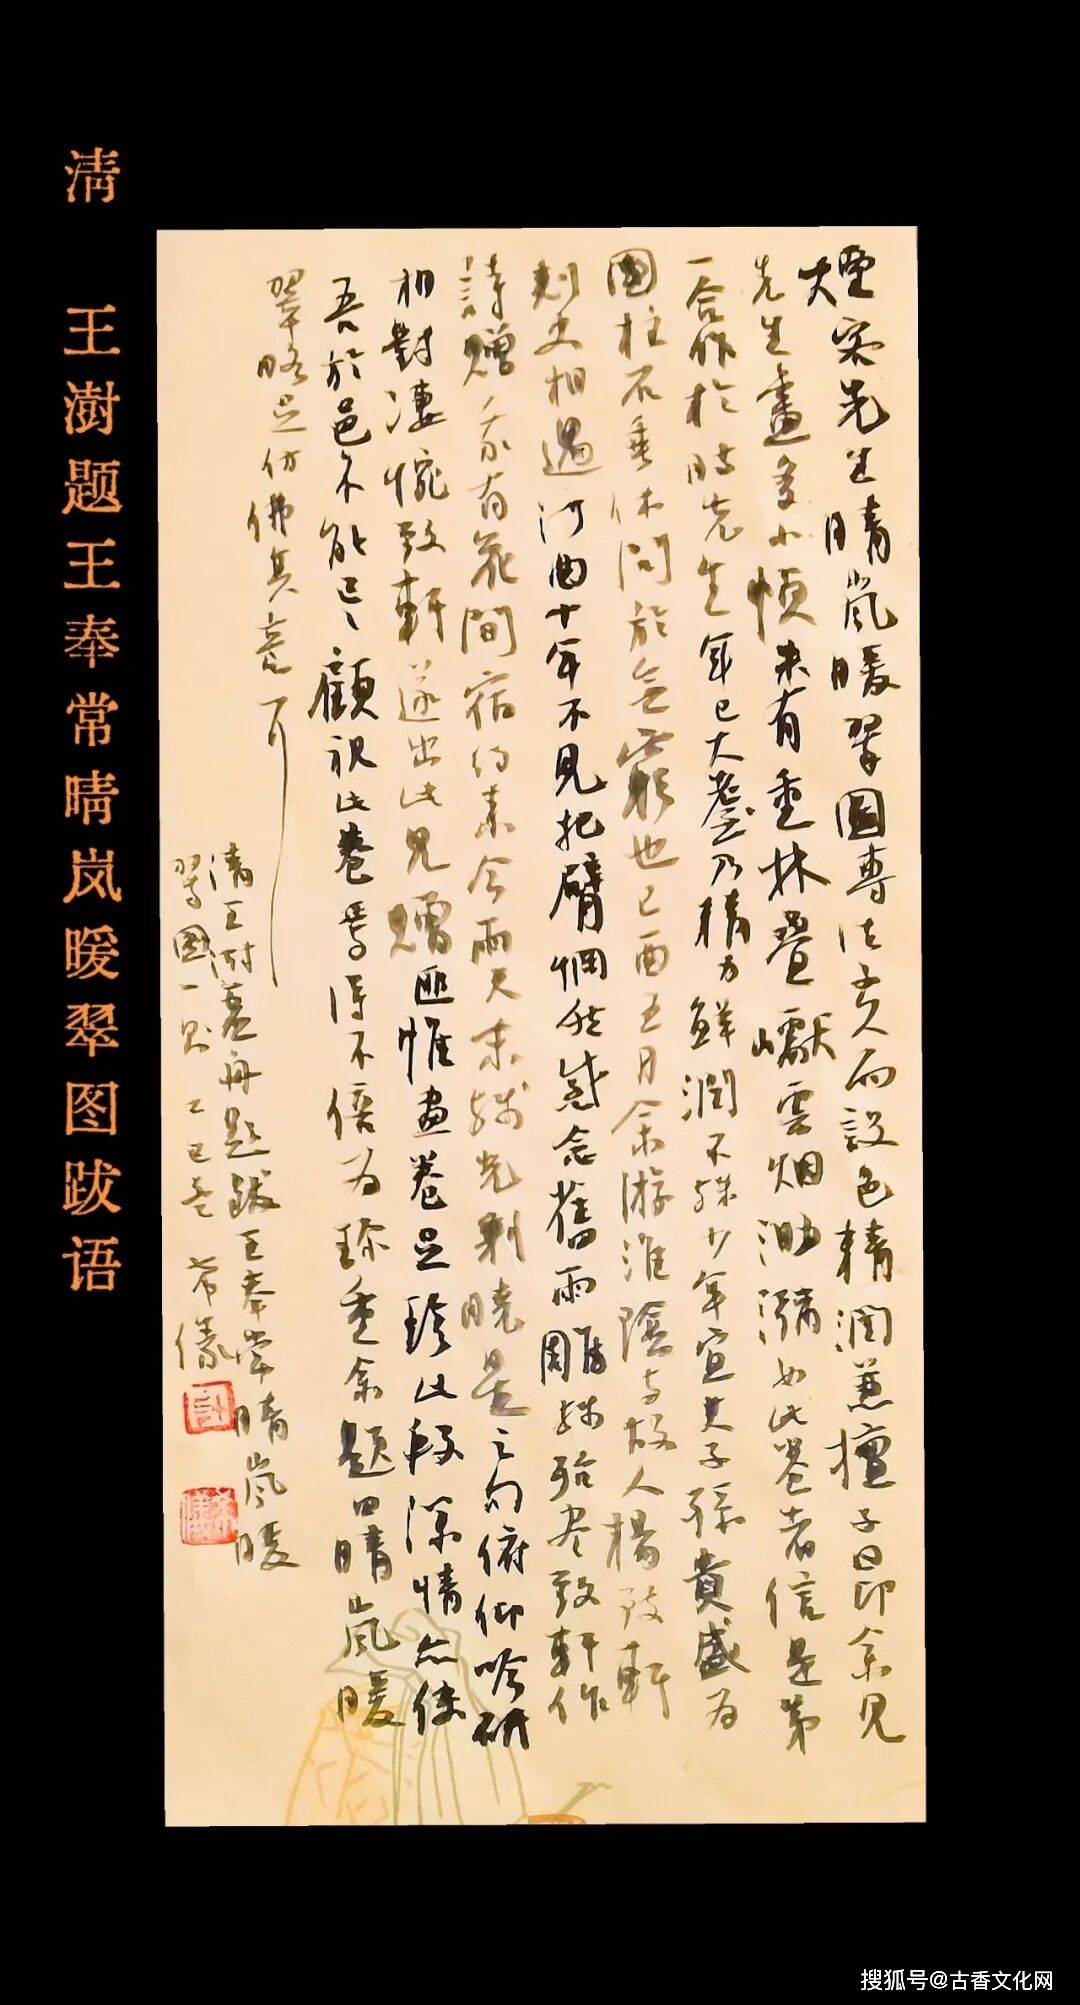 清 王澍题王奉常晴岚暖翠图跋语
煙客先生晴嵐暖翠圖專法大癡而設色精潤兼擅子昂余見
先生畫多小幀未有重林疊巘雲烟渺瀰如此卷者信是第
一合作於時先生年已大耋乃精力鮮潤不殊少年宜其子孫貴盛為
國柱石垂休問於無窮也己酉五月余游淮陰与故人楊致軒
刺史相遇河曲十年不見把臂惘然感念舊雨凋殘殆尽致軒作
詩贈余有花間宿约素今雨天末殘光剩曉星之句俯仰吟研
相對淒惋致軒遂出此見贈匪惟畫卷足珍此段深情亦使
吾於邑不能已已顧視此卷焉得不倍为珍重余題曰晴嵐暖
翠略足仿佛其意可
清王澍虛舟題跋王奉常晴嵐暖
翠圖一則 乙巳 希儀
搜狐号@古香文化网